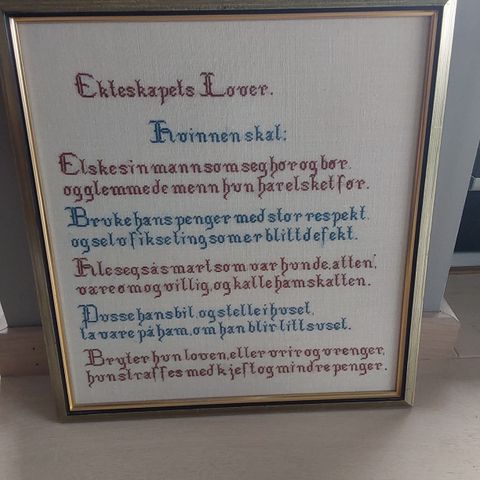 Ekteskapets Lover.
Kvinnen skal:
Elske sin mann som seg hør og bør,
og glemme de menn hun har elsket før.
Bruke hans penger med stor respekt,
og selv fikse ting som er blitt defekt.
Kle seg så smart som var hun de, atten,
være øm og villig, og kalle ham skatten.
Pusse hans bil, og stelle i huset,
ta vare på ham, om han blir litt susel.
Bryter hun loven, eller vrir og vrenger,
hun straffes med kjeft og mindre penger.